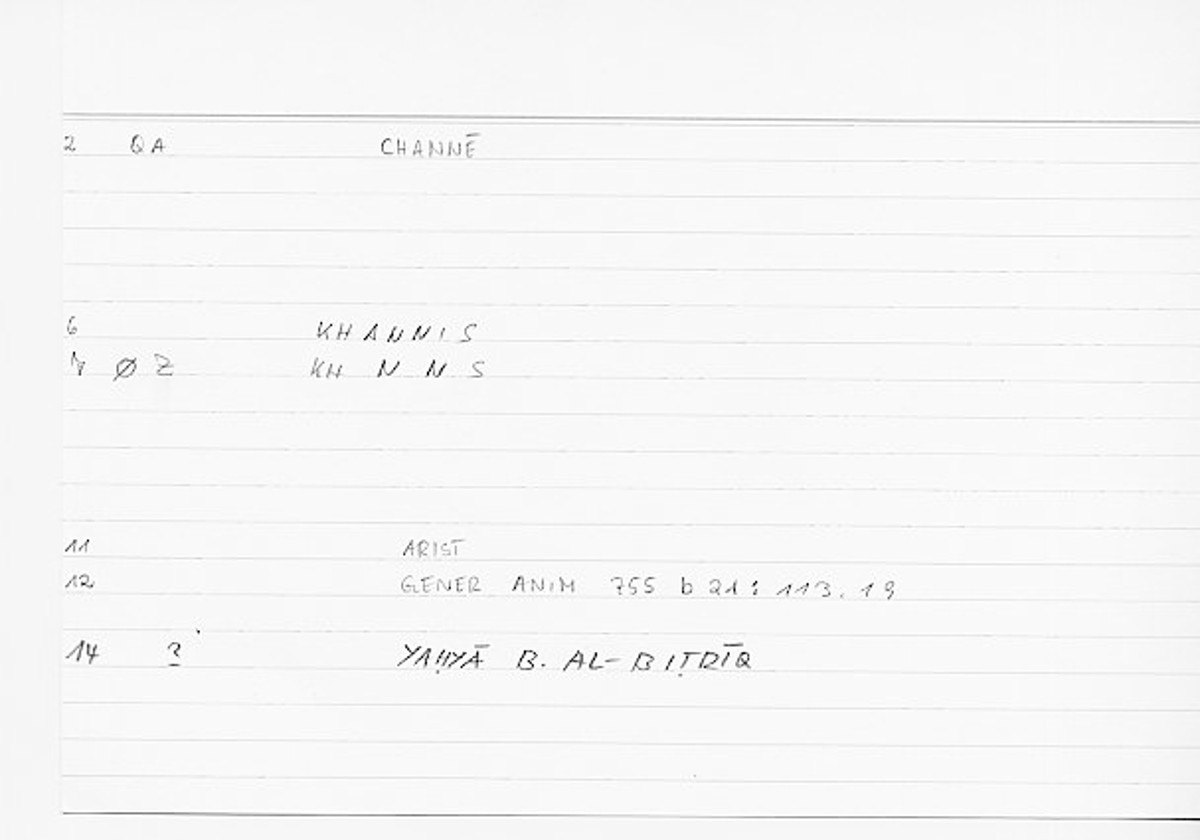 2 QA CHANNĒ
6 KHANNIS
Ø Z KH N N S
11 ARIST
12 GENER ANIM 755 b 21 : 113.19
14 ? YAḤYĀ B. AL-BIṬRĪQ